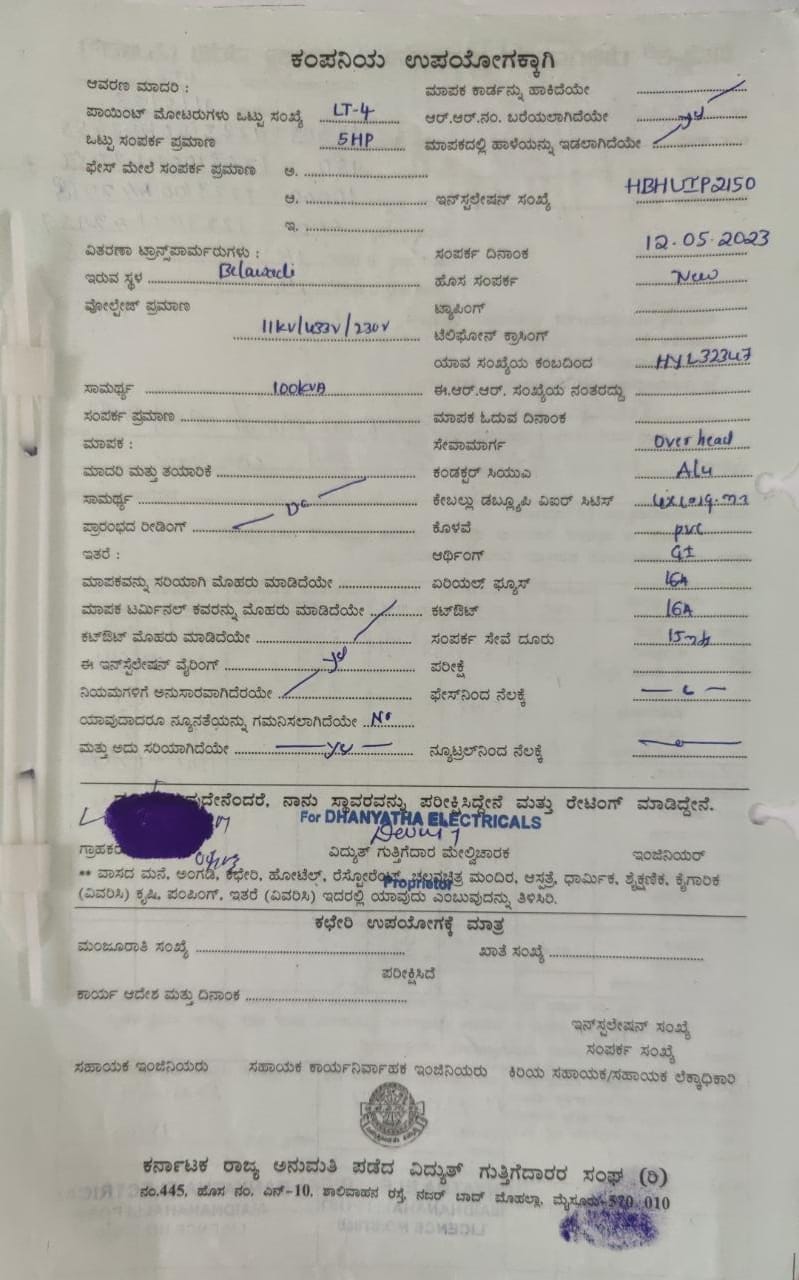 ಕಂಪನಿಯ ಉಪಯೋಗಕ್ಕಾಗಿ
ಆವರಣ ಮಾದರಿ : ಮಾಪಕ ಕಾರ್ಡನ್ನು ಹಾಕಿದೆಯೇ
ಪಾಯಿಂಟ್ ಮೋಟರುಗಳು ಒಟ್ಟು ಸಂಖ್ಯೆ LT-4 ಆರ್.ಆರ್.ನಂ. ಬರೆಯಲಾಗಿದೆಯೇ
ಒಟ್ಟು ಸಂಪರ್ಕ ಪ್ರಮಾಣ 5HP ಮಾಪಕದಲ್ಲಿ ಹಾಳೆಯನ್ನು ಇಡಲಾಗಿದೆಯೇ
ಫೇಸ್ ಮೇಲೆ ಸಂಪರ್ಕ ಪ್ರಮಾಣ ಅ.
ಆ. ಇನ್‌ಸ್ಟಲೇಷನ್ ಸಂಖ್ಯೆ HBHUIP2150
ಇ.
ವಿತರಣಾ ಟ್ರಾನ್ಸ್‌ಪಾರ್ಮರುಗಳು : ಸಂಪರ್ಕ ದಿನಾಂಕ 12.05.2023
ಇರುವ ಸ್ಥಳ Belawadi ಹೊಸ ಸಂಪರ್ಕ New
ವೋಲ್ಟೇಜ್ ಪ್ರಮಾಣ ಟ್ಯಾಪಿಂಗ್
11KV/433V/230V ಟೆಲಿಫೋನ್ ಕ್ರಾಸಿಂಗ್
ಯಾವ ಸಂಖ್ಯೆಯ ಕಂಬದಿಂದ HYL32347
ಸಾಮರ್ಥ್ಯ 100KVA ಈ.ಆರ್.ಆರ್. ಸಂಖ್ಯೆಯ ನಂತರದ್ದು
ಸಂಪರ್ಕ ಪ್ರಮಾಣ ಮಾಪಕ ಓದುವ ದಿನಾಂಕ
ಮಾಪಕ : ಸೇವಾಮಾರ್ಗ Over head
ಮಾದರಿ ಮತ್ತು ತಯಾರಿಕೆ ಕಂಡಕ್ಟರ್ ಸಿಯುಎ Alu
ಸಾಮರ್ಥ್ಯ ಕೇಬಲ್ಲು ಡಬ್ಲ್ಯೂಪಿ ವಿಐರ್ ಸಿಟಿಸ್
ಪ್ರಾರಂಭದ ರೀಡಿಂಗ್ ಕೊಳವೆ pvc
ಇತರೆ : ಆರ್ಥಿಂಗ್ GI
ಮಾಪಕವನ್ನು ಸರಿಯಾಗಿ ಮೊಹರು ಮಾಡಿದೆಯೇ ಏರಿಯಲ್ ಫ್ಯೂಸ್ 16A
ಮಾಪಕ ಟರ್ಮಿನಲ್ ಕವರನ್ನು ಮೊಹರು ಮಾಡಿದೆಯೇ ಕಟ್‌ಔಟ್ 16A
ಕಟ್‌ಔಟ್ ಮೊಹರು ಮಾಡಿದೆಯೇ ಸಂಪರ್ಕ ಸೇವೆ ದೂರು
ಈ ಇನ್‌ಸ್ಟೆಲೇಷನ್ ವೈರಿಂಗ್ ಪರೀಕ್ಷೆ
ನಿಯಮಗಳಿಗೆ ಅನುಸಾರವಾಗಿದೆರಯೇ ಫೇಸ್‌ನಿಂದ ನೆಲಕ್ಕೆ
ಯಾವುದಾದರೂ ನ್ಯೂನತೆಯನ್ನು ಗಮನಿಸಲಾಗಿದೆಯೇ No
ಮತ್ತು ಅದು ಸರಿಯಾಗಿದೆಯೇ ನ್ಯೂಟ್ರಲ್‌ನಿಂದ ನೆಲಕ್ಕೆ
ನಾನು ಸ್ಥಾವರವನ್ನು ಪರೀಕ್ಷಿಸಿದ್ದೇನೆ ಮತ್ತು ರೇಟಿಂಗ್ ಮಾಡಿದ್ದೇನೆ.
For DHANYATHA ELECTRICALS
ವಿದ್ಯುತ್ ಗುತ್ತಿಗೆದಾರ ಮೇಲ್ವಿಚಾರಕ ಇಂಜಿನಿಯರ್
** ವಾಸದ ಮನೆ, ಅಂಗಡಿ, ಕಛೇರಿ, ಹೋಟೆಲ್, ರೆಸ್ಟೋರೆಂಟ್, ಚಲನಚಿತ್ರ ಮಂದಿರ, ಆಸ್ಪತ್ರೆ, ಧಾರ್ಮಿಕ, ಶೈಕ್ಷಣಿಕ, ಕೈಗಾರಿಕ
Proprietor
(ವಿವರಿಸಿ) ಕೃಷಿ, ಪಂಪಿಂಗ್, ಇತರೆ (ವಿವರಿಸಿ) ಇದರಲ್ಲಿ ಯಾವುದು ಎಂಬುವುದನ್ನು ತಿಳಿಸಿರಿ.
ಕಛೇರಿ ಉಪಯೋಗಕ್ಕೆ ಮಾತ್ರ
ಮಂಜೂರಾತಿ ಸಂಖ್ಯೆ ಖಾತೆ ಸಂಖ್ಯೆ
ಪರೀಕ್ಷಿಸಿದೆ
ಕಾರ್ಯ ಆದೇಶ ಮತ್ತು ದಿನಾಂಕ
ಇನ್‌ಸ್ಟಲೇಷನ್ ಸಂಖ್ಯೆ
ಸಂಪರ್ಕ ಸಂಖ್ಯೆ
ಸಹಾಯಕ ಇಂಜಿನಿಯರು ಸಹಾಯಕ ಕಾರ್ಯನಿರ್ವಾಹಕ ಇಂಜಿನಿಯರು ಕಿರಿಯ ಸಹಾಯಕ/ಸಹಾಯಕ ಲೆಕ್ಕಾಧಿಕಾರಿ
ಕರ್ನಾಟಕ ರಾಜ್ಯ ಅನುಮತಿ ಪಡೆದ ವಿದ್ಯುತ್ ಗುತ್ತಿಗೆದಾರರ ಸಂಘ (ರಿ)
ನಂ.445, ಹೊಸ ನಂ. ಎನ್-10, ಶಾಲಿವಾಹನ ರಸ್ತೆ, ನಜರ್ ಬಾದ್ ಮೊಹಲ್ಲಾ, ಮೈಸೂರು-570 010